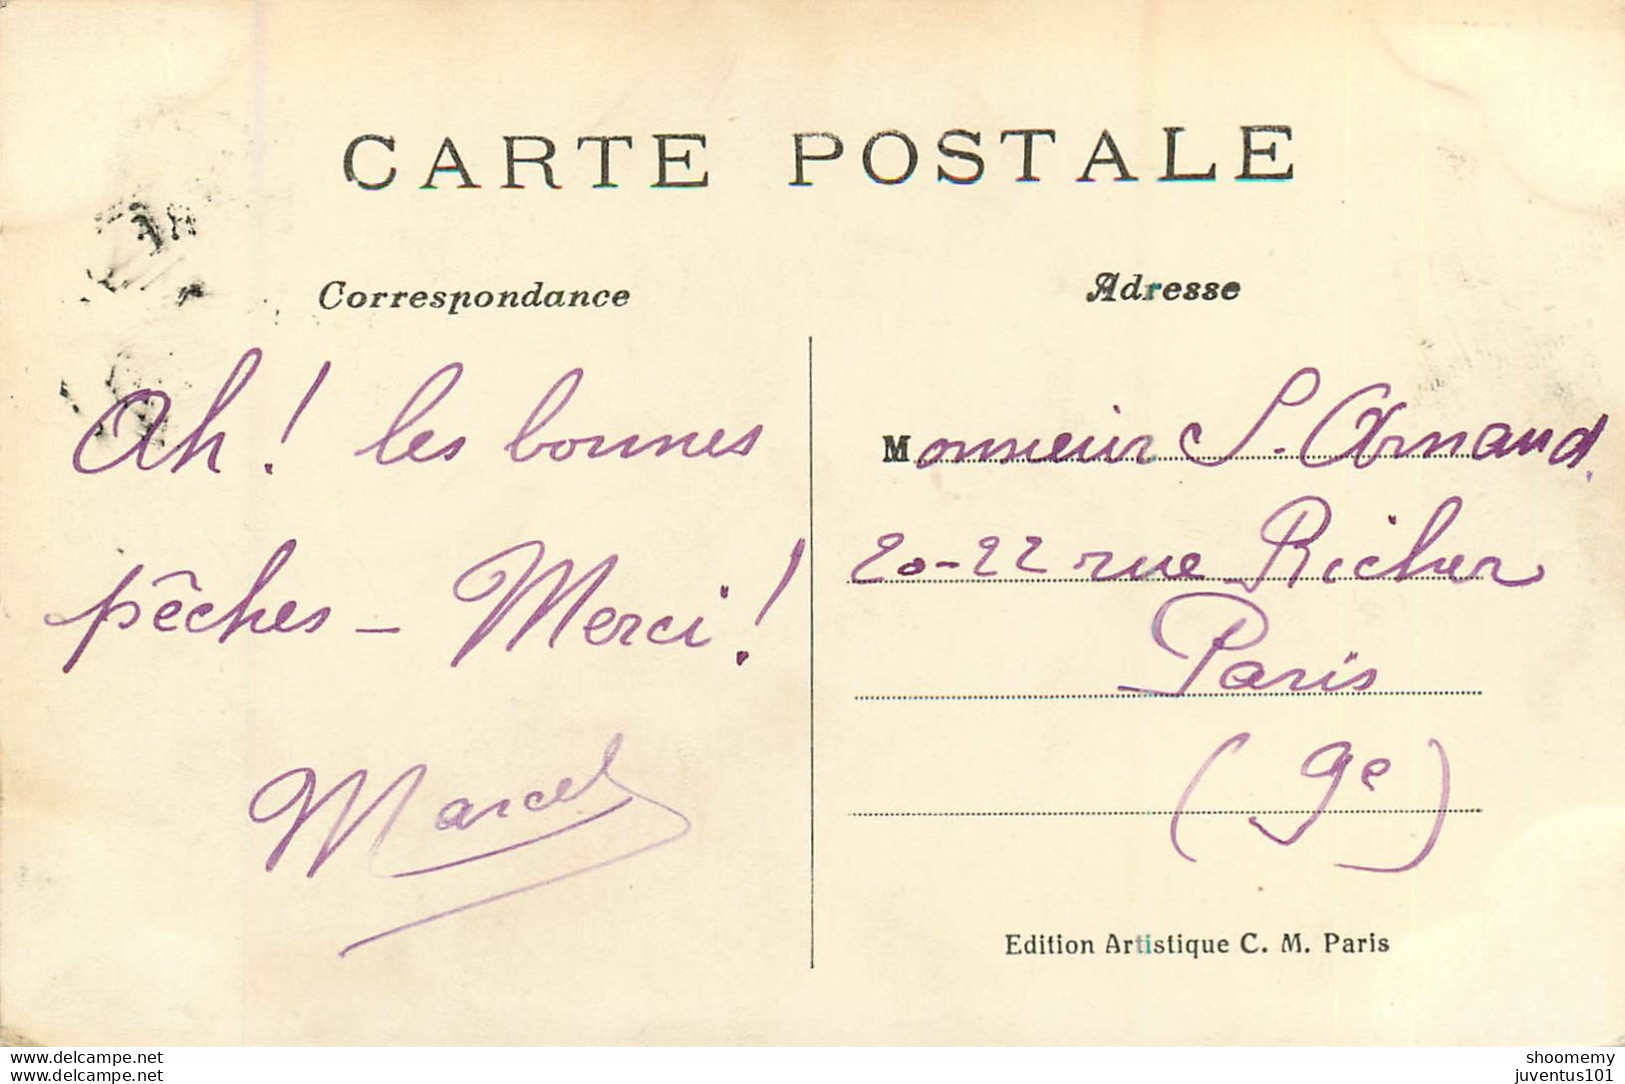 CARTE POSTALE
Correspondance
Adresse
Ah! les bonnes
pêches - Merci!
Marcel
Monsieur S. Arnaud
20-22 rue Richer
Paris
(9e)
Edition Artistique C. M. Paris
www.delcampe.net
www.delcampe.net
shoomemy
juventus101